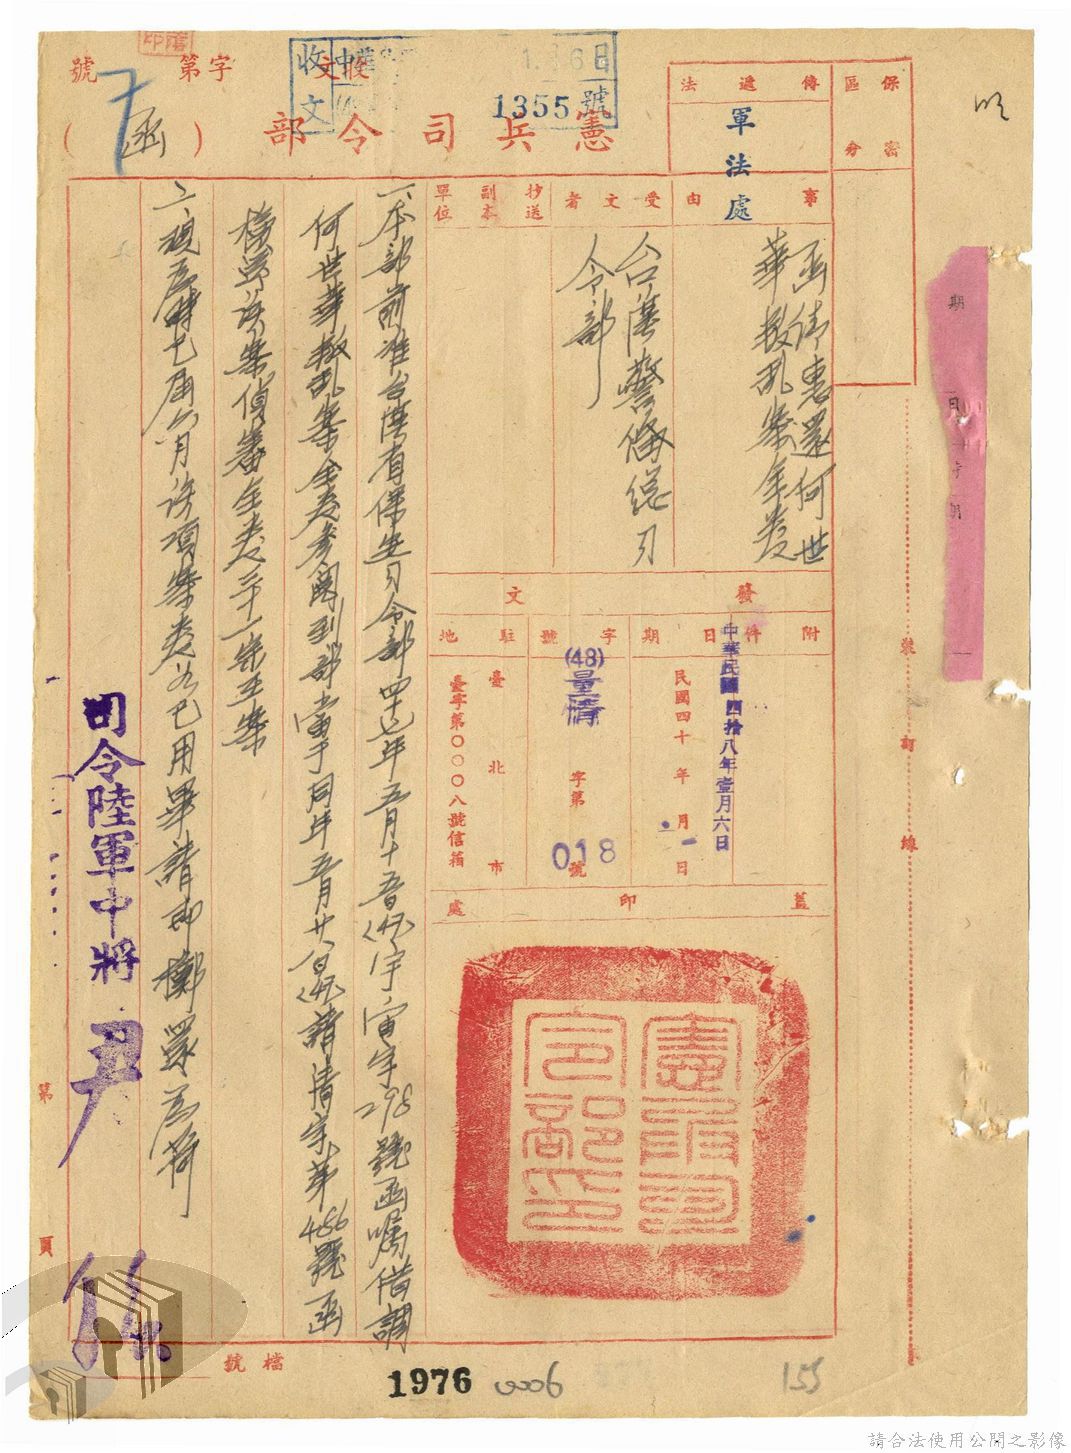 保密
區分
傳遞法
軍法處
收文
1355號
憲兵司令部
(函)
字第
號
事由
函請惠還何世
華叛亂案全卷
受文者
台灣警備總司
令部
抄送
副本
單位
發文
附件
日期
中華民國四拾八年壹月六日
民國四十年月日
字號
(48)
字第018號
駐地
臺北市
臺字第〇〇〇八號信箱
蓋印處
憲兵司令部印
一、本部前准台灣省保安司令部四七年五月十五日
字298號函囑借調
何世華叛亂案全卷參閱到部當于同年五月廿八日
清字第486號函
檢同該案偵審全卷三十一宗在案
二、現為時已屆六月該項案卷如已用畢請即擲還為荷
司令陸軍中將尹
第頁
裝訂線
檔號
1976
0006
155
請合法使用公開之影像